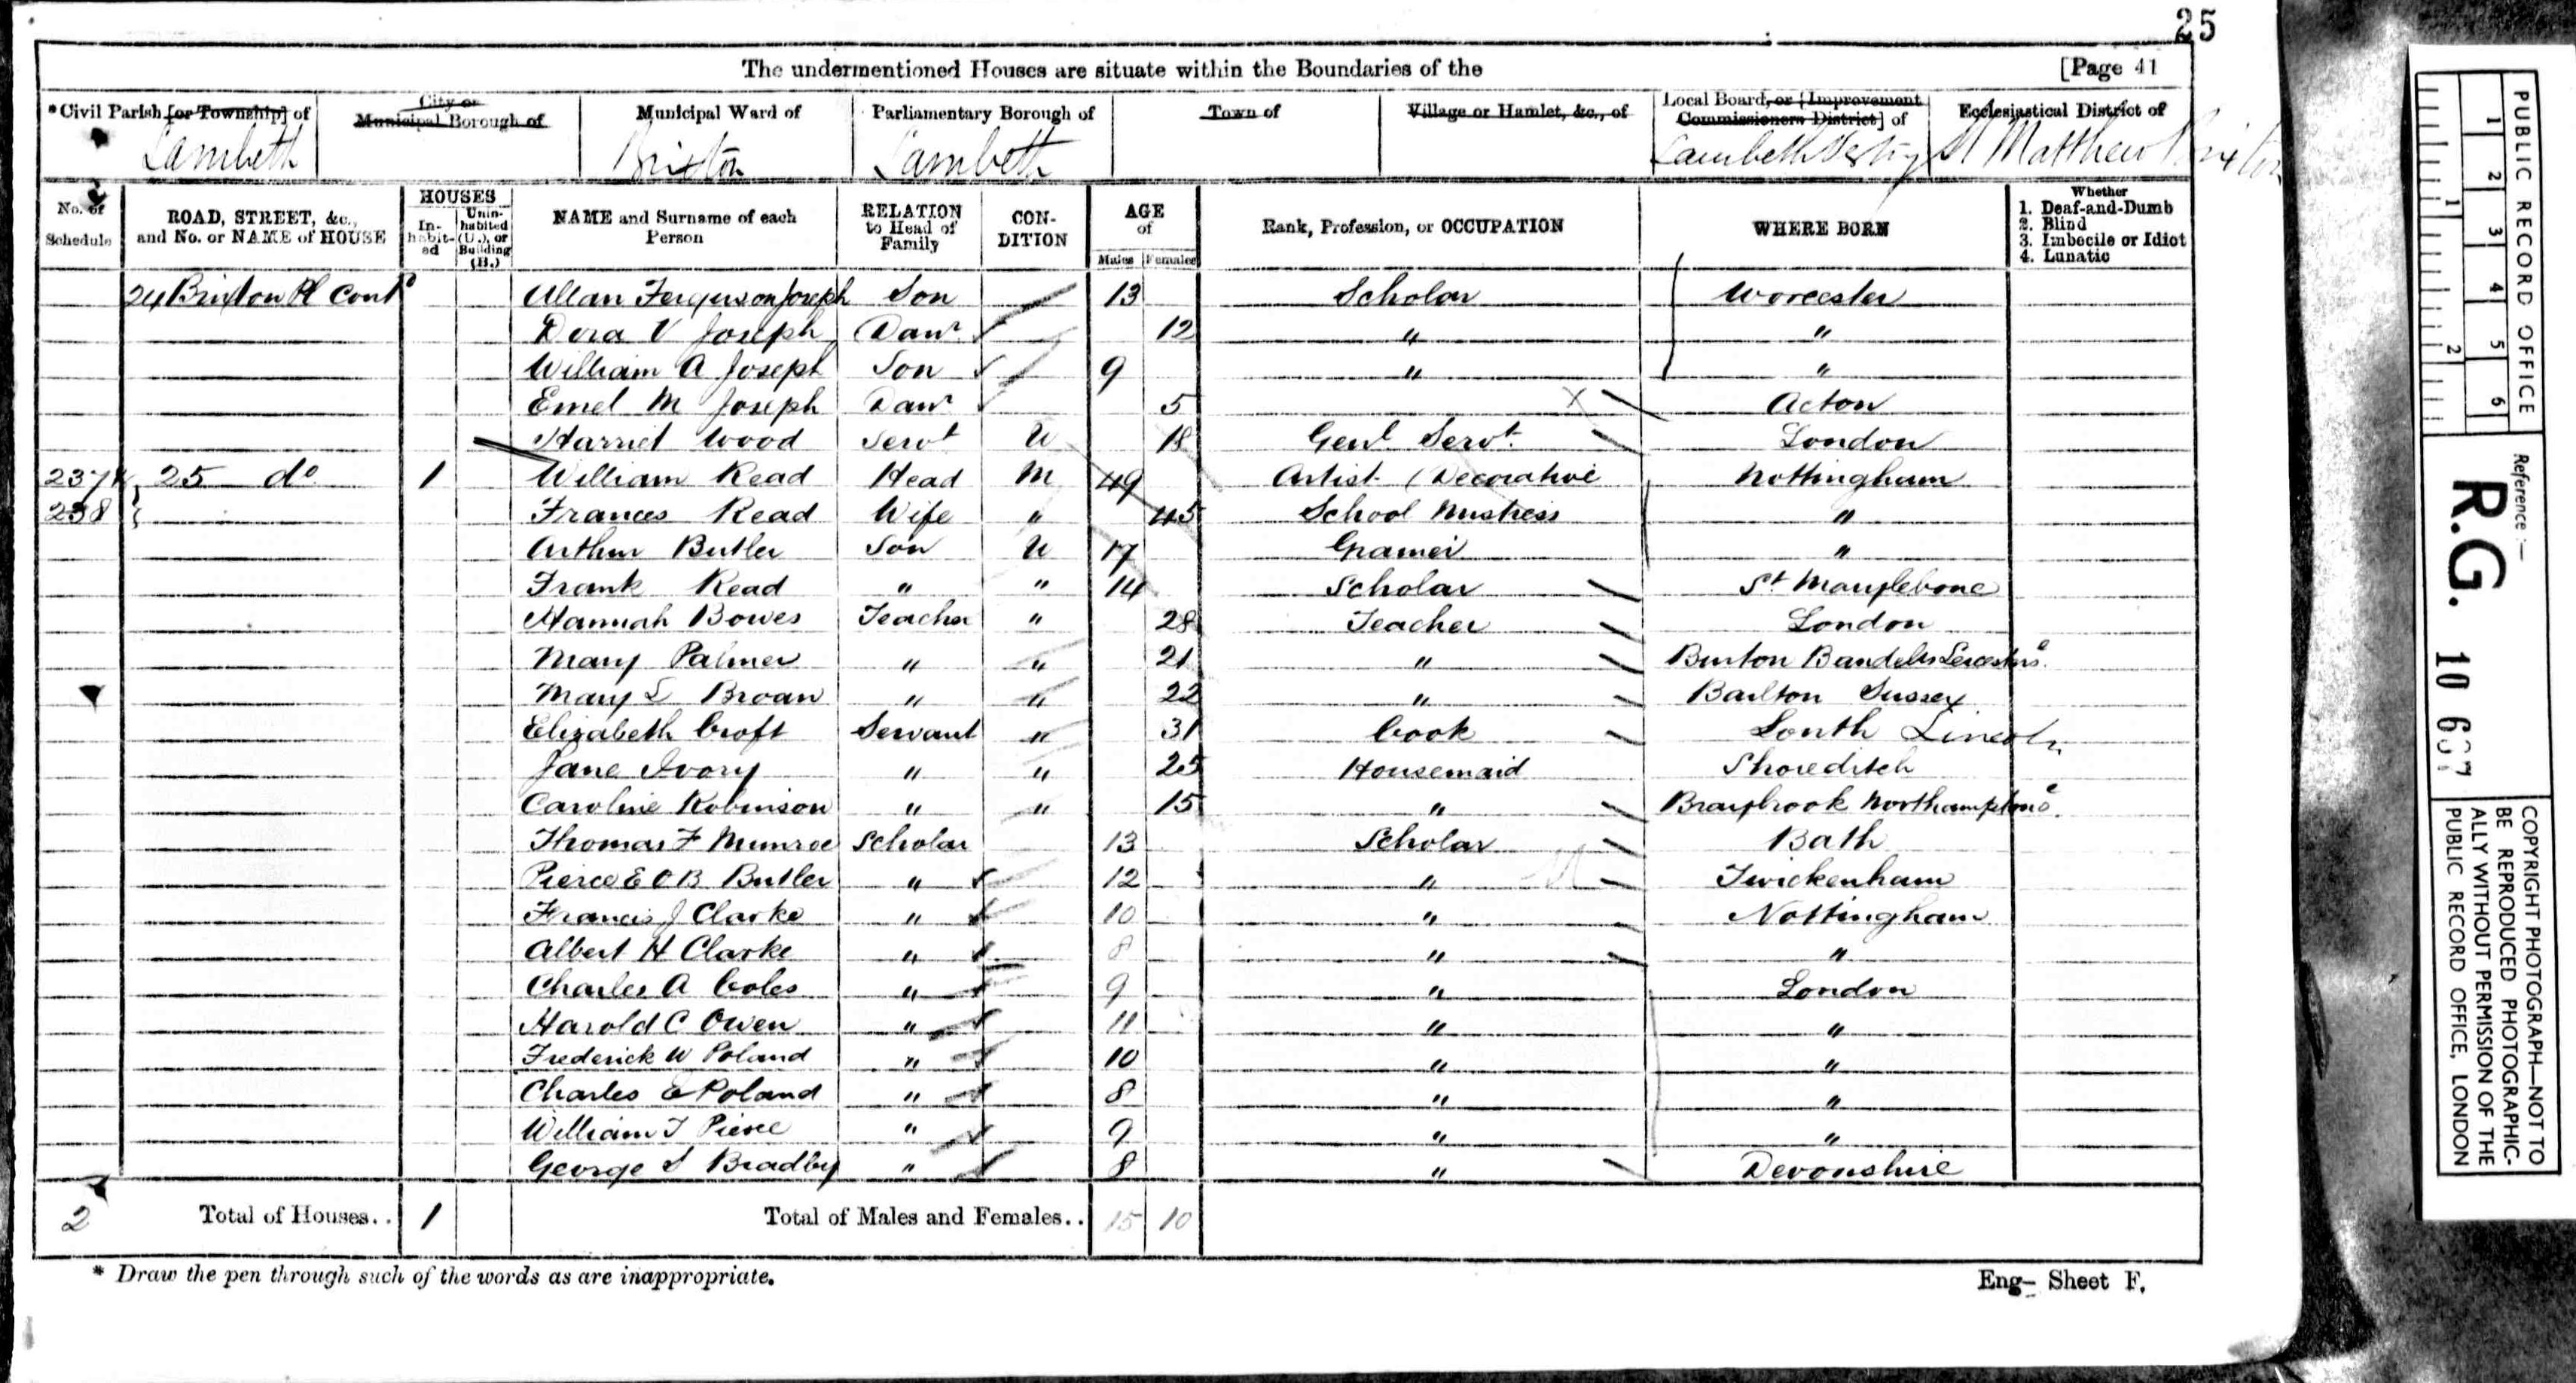 25
The undermentioned Houses are situate within the Boundaries of the [Page 41
*Civil Parish [or Township] of City or Municipal Borough of Municipal Ward of Parliamentary Borough of Town of Village or Hamlet, &c., of Local Board, or [Improvement Commissioners District] of Ecclesiastical District of
Lambeth Brixton Lambeth Lambeth Vestry St Matthew Brixton
No. of Schedule ROAD, STREET, &c., and No. or NAME of HOUSE HOUSES Inhabited Uninhabited (U.), or Building (B.) NAME and Surname of each Person RELATION to Head of Family CONDITION AGE of Males Females Rank, Profession, or OCCUPATION WHERE BORN Whether 1. Deaf-and-Dumb 2. Blind 3. Imbecile or Idiot 4. Lunatic
24 Brixton Pl Contd Allan Ferguson Joseph Son 13 Scholar Worcester
Dora V Joseph Daur 12 " "
William A Joseph Son 9 " "
Joseph Daur 5 Acton
Harriet Wood Servt U 18 Genl Servt London
237 25 do 1 William Read Head M 49 Artist (Decorative Nottingham
238 Frances Read Wife " 45 School Mistress "
Arthur Butler Son U 17 "
Frank Read " " 14 Scholar St Marylebone
Hannah Bowes Teacher " 28 Teacher London
Mary Palmer " " 21 " Burton
Mary L " " 22 " Sussex
Elizabeth Croft Servant " 31 Cook Louth Lincoln
Jane Ivory " " 25 Housemaid Shoreditch
Caroline Robinson " " 15 " Braybrook Northamptons
Thomas F Munroe Scholar 13 Scholar Bath
Pierce E O B Butler " 12 " Twickenham
Francis J Clarke " 10 " Nottingham
Albert H Clarke " 8 " "
Charles A Coles " 9 " London
Harold C Owen " 11 " "
Frederick W Poland " 10 " "
Charles E Poland " 8 " "
William T Pierce " 9 " "
George S Bradby " 8 " Devonshire
2 Total of Houses.. 1 Total of Males and Females.. 15 10
* Draw the pen through such of the words as are inappropriate. Eng– Sheet F.
PUBLIC RECORD OFFICE
1 2 3 4 5 6
1 2
Reference:—
R.G. 10
COPYRIGHT PHOTOGRAPH—NOT TO
BE REPRODUCED PHOTOGRAPHIC-
ALLY WITHOUT PERMISSION OF THE
PUBLIC RECORD OFFICE, LONDON